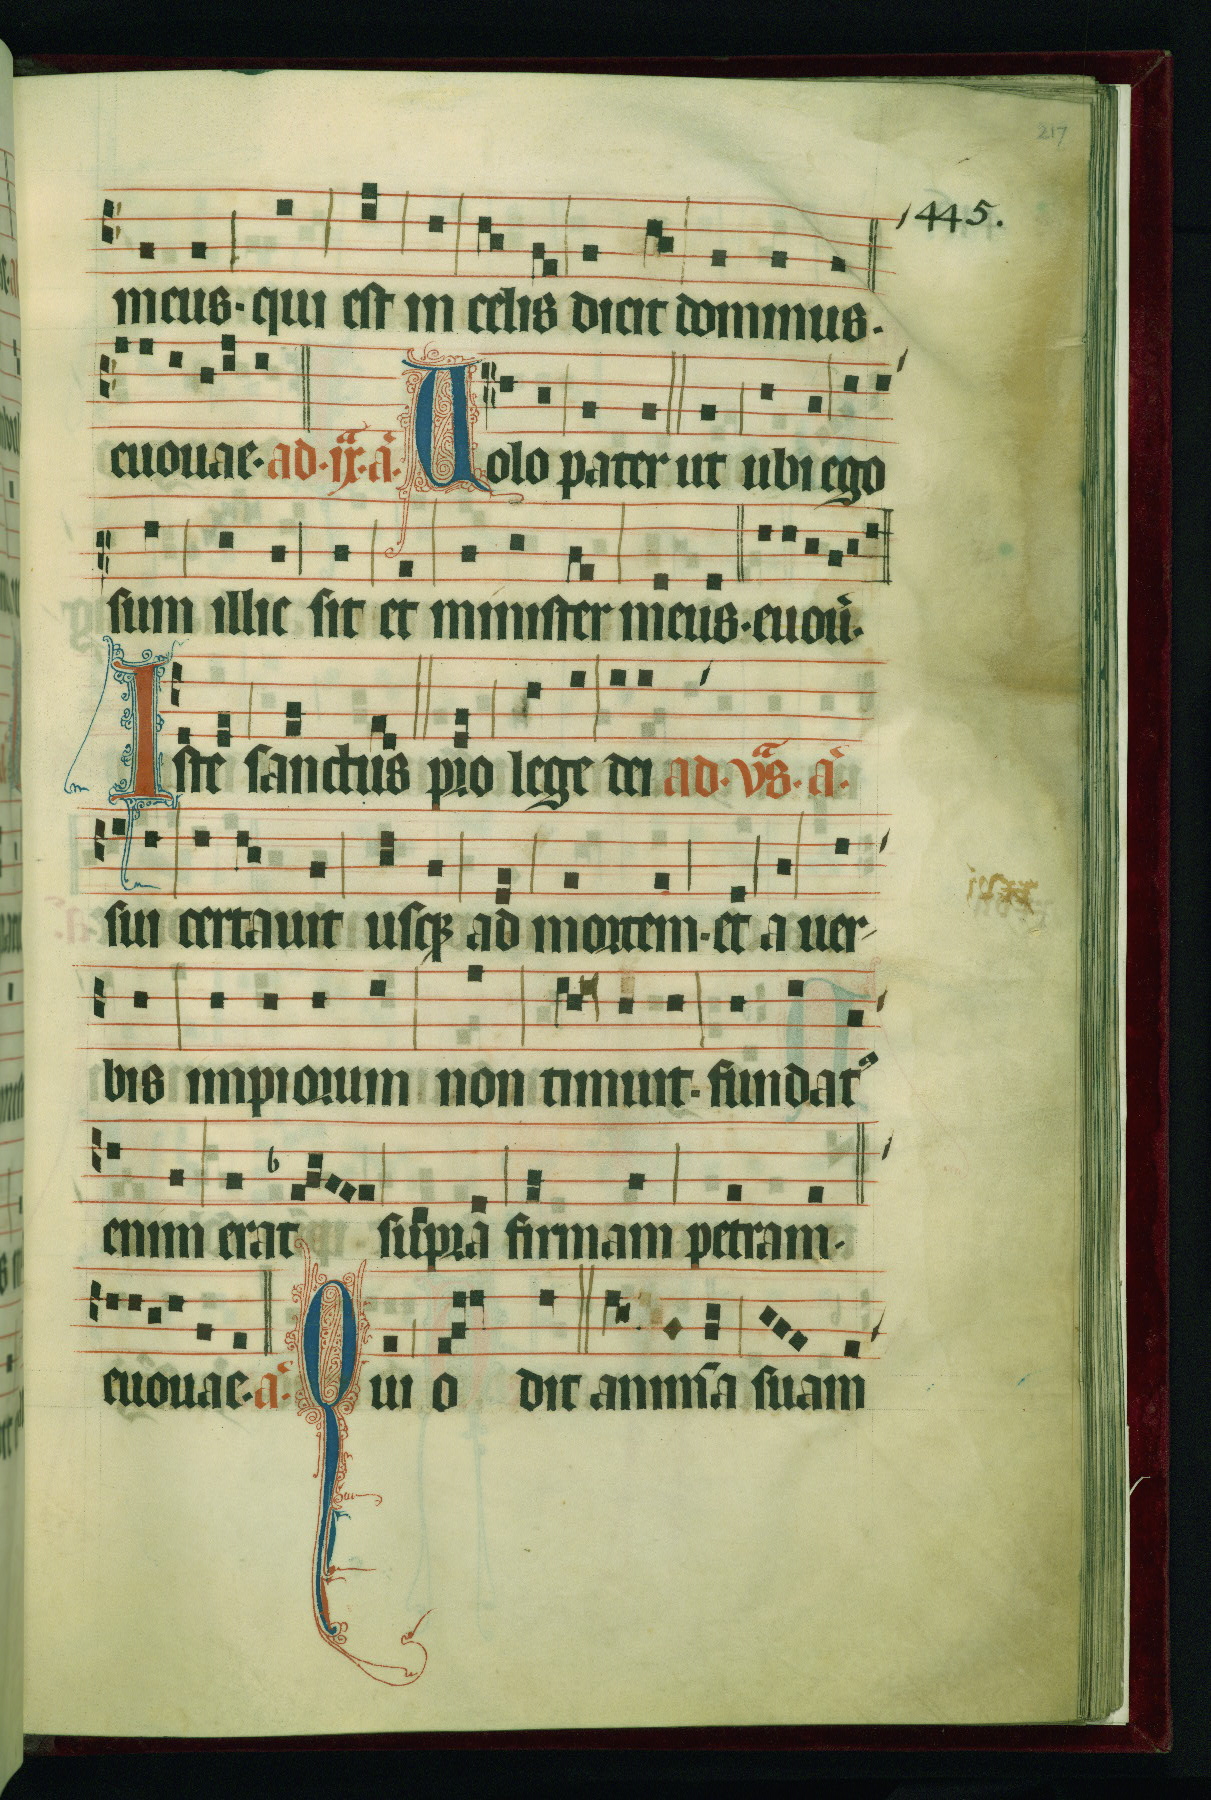 217
1445.
meus. qui est in celis dicit dominus.
euouae. ad. ix. a. Uolo pater ut ubi ego
sum illic sit et minister meus. euou.
Iste sanctus pro lege dei ad. vs. a.
sui certauit usq ad mortem. et a uer
bis impiorum non timuit. fundat
enim erat supra firmam petram.
euouae. a. Qui odit anima suam